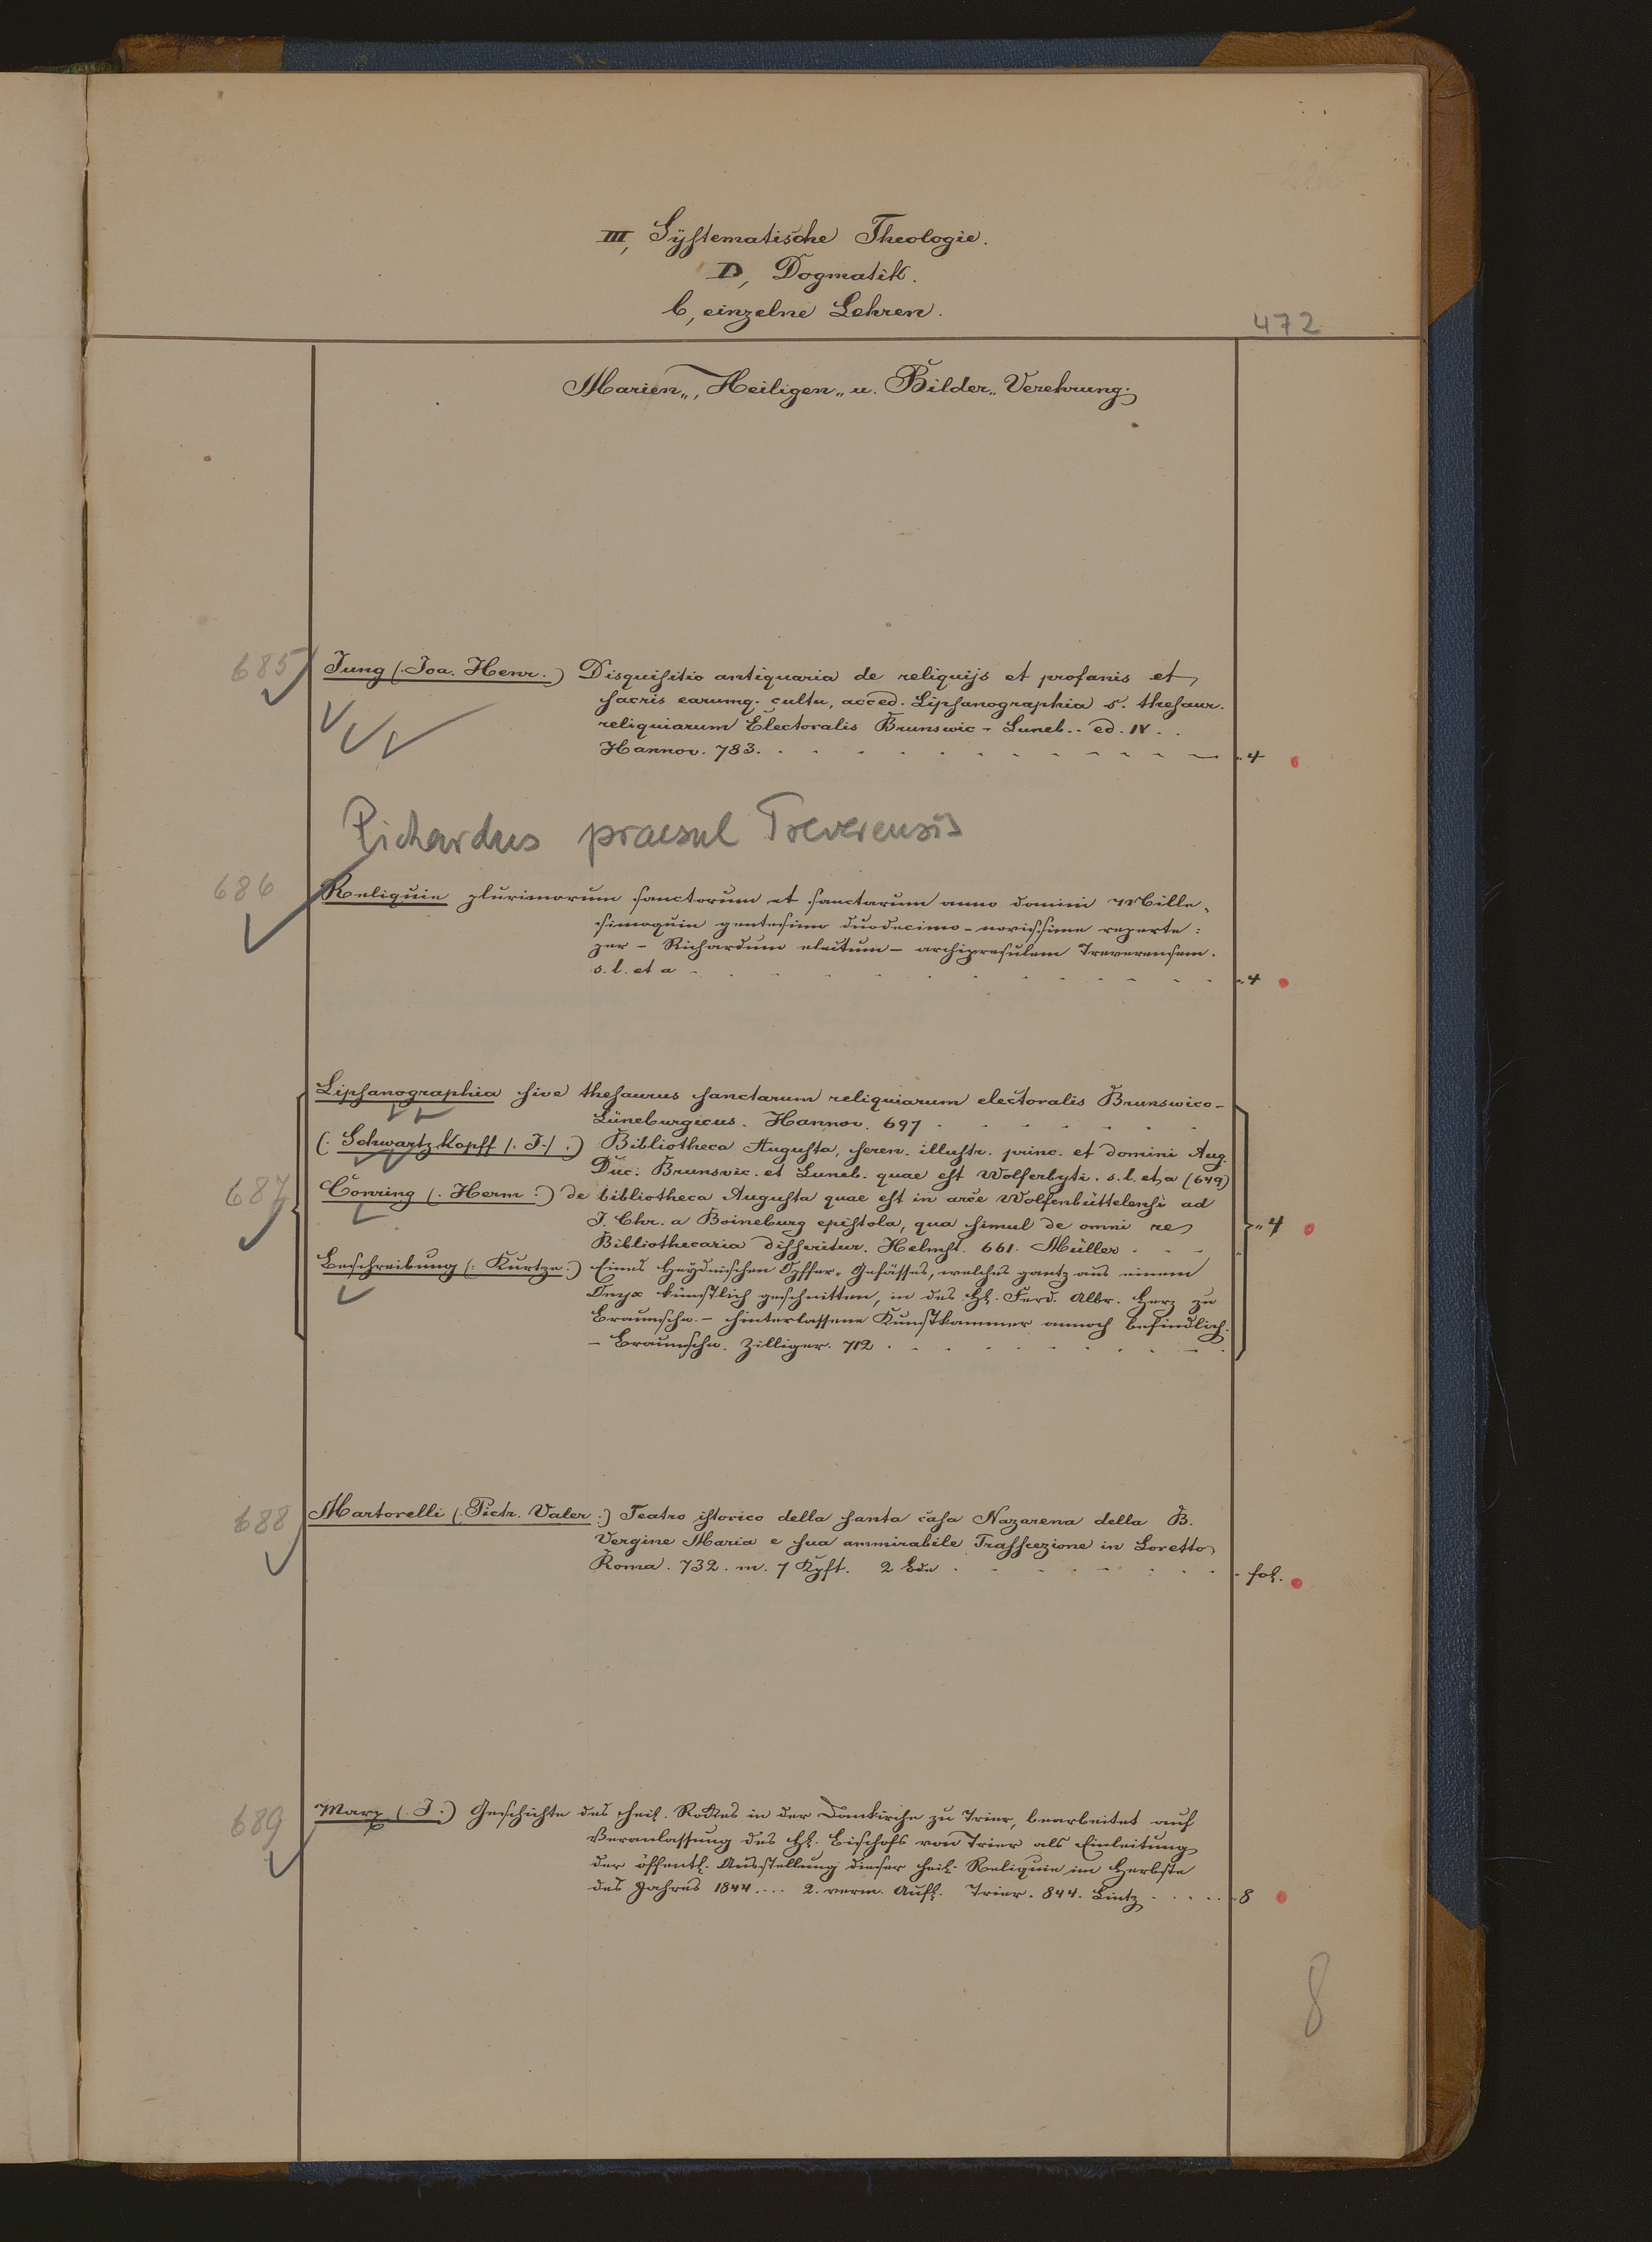 III, Systematische Theologie.
D, Dogmatik.
b, einzelne Lehren.
472
Marien-, Heiligen- u. Bilder-Verehrung.
685 Jung (. Joa. Henr.) Disquisitio antiquaria de reliquijs et profanis et
sacris earumq. cultu, acced. Lipsanographia s. thesaur.
reliquiarum Electoralis Brunswic - Luneb.. ed. IV..
Hannov. 783. 4
Richardus praesul Treverensis
686 Reliquie plurimorum sanctorum et sanctarum anno domini Mille-
simoquin gentesimo duodecimo - novissime reperte:
per - Richardum electum - archipresulem Treverensem.
s. l. et a 4
Lipsanographia sive thesaurus sanctarum reliquiarum electoralis Brunswico-
Lüneburgicus. Hannov. 697
(. Schwartzkopff /. J./.) Bibliotheca Augusta, seren. illustr. princ. et domini Aug.
Duc. Brunsvic. et Luneb. quae est Wolferbyti. s. l. et a (649)
687 Conring (. Herm.) de bibliotheca Augusta quae est in arce Wolfenbüttelensi ad
J. Chr. a Boineburg epistola, qua simul de omni re
Bibliothecaria disseritur. Helmst. 661. Müller 4
Beschreibung (: Kurtze.) Eines Heydnischen Opffer-Gefässes, welches gantz aus einem
Onyx künstlich geschnitten, in des H. Ferd. Albr. Herz zu
Braunschw. - hinterlassene Kunstkammer annoch befindlich.
- Braunschw. Zilliger. 712
688 Martorelli (. Pietr. Valer.) Teatro istorico della santa casa Nazarena della B.
Vergine Maria e sua ammirabile Traslezione in Loretto
Roma. 732. m. 7 Kpft. 2 Bde fol.
689 Marx (. J.) Geschichte des heil. Rockes in der Domkirche zu Trier, bearbeitet auf
Veranlassung des H. Bischofs von Trier als Einleitung
der öffentl. Ausstellung dieser heil. Reliquie im Herbste
des Jahres 1844.... 2. verm. Aufl. Trier. 844. Lintz 8
8